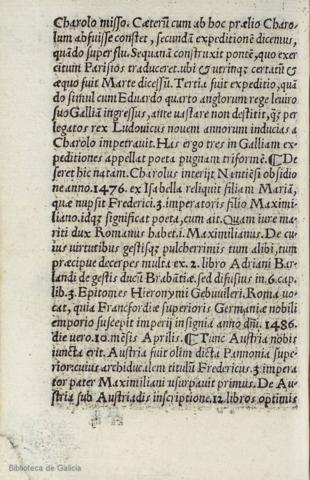 Charolo misso. Cæterũ cum ab hoc prælio Charo-
lum abfuisse constet, secundã expeditionẽ dicemus,
quãdo super flu. Sequanã construxit pontẽ, quo exer
citum Parisios traduceret. ubi & utrinqꝫ certatũ &
æquo fuit Marte dicessũ. Tertia fuit expeditio, quã
do simul cum Eduardo quarto anglorum rege leuiro
suo Galliã ingressus, ante uastare non destitit, q̃ꝫ per
legatos rex Ludouicus nouem annorum inducias a
Charolo impetrauit. Has ergo tres in Galliam ex
peditiones appellat poeta pugnam triformẽ. ¶ De
seret hic natam. Charolus interijt Nantiẽsi obsidio
ne anno. 1476. ex Isabella reliquit filiam Mariã,
quæ nupsit Frederici. 3. imperatoris filio Maximi-
liano. idqꝫ significat poeta, cum ait. Quam iure ma-
riti dux Romanus habet. i. Maximilianus. De cu
ius uirtutibus gestisqꝫ pulcherrimis tum alibi, tum
præcipue decerpes multa ex. 2. libro Adriani Bar-
landi de gestis ducũ Brabãtiæ. sed diffusius in. 6. cap.
lib. 3. Epitomes Hieronymi Gebuuileri. Roma uo-
cat, quia Francfordiæ superioris Germaniæ nobili
emporio suscepit imperij insignia anno dñi. 1486.
die uero. 10. mẽsis Aprilis. ¶ Tunc Austria nobis
iuncta erit. Austria fuit olim dicta Pannonia supe-
rior: cuius archiducalem titulũ Fredericus. 3. impera
tor pater Maximiliani usurpauit primus. De Au-
stria sub Austriadis inscriptione. 12 libros optimis
Biblioteca de Galicia